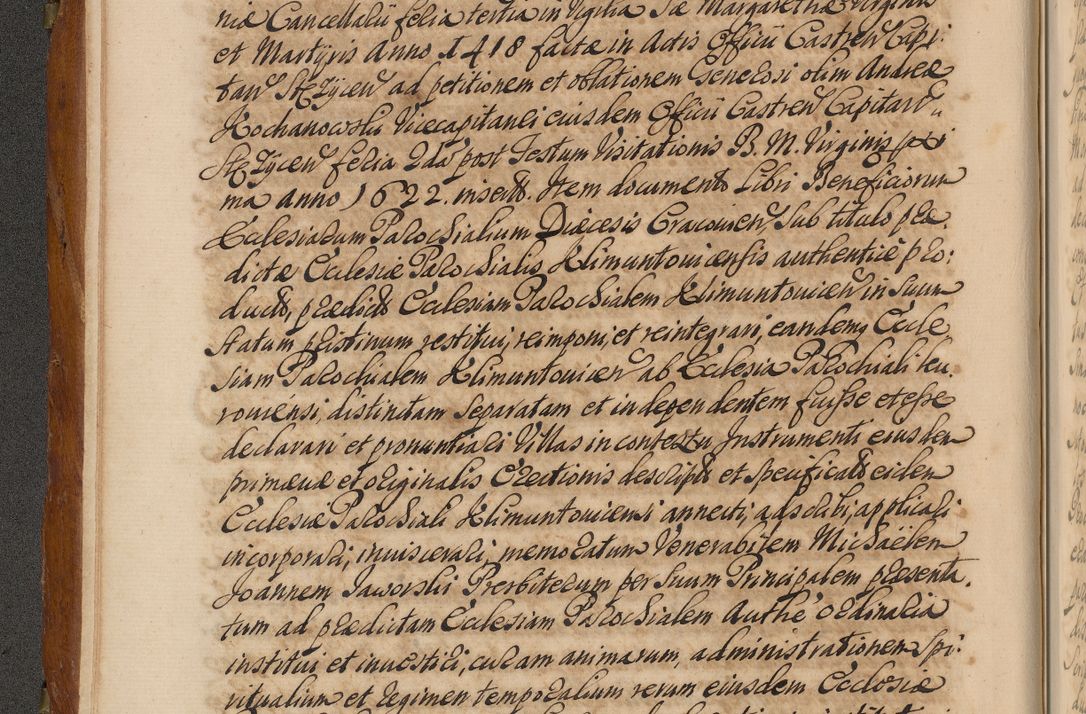 niæ Cancellarii feria tertia in Vigilia Stæ Margarethæ Virginis
et Martyris Anno 1418 factæ in Actis Officii Castren Capi:
tan ad petitionem et oblationem Generosi olim Andreæ
Kochanowski Vicecapitanei eiusdem Officii Castren Capitan
feria 2da post Festum Visitationis B. M. Virginis proxi
ma anno 1622. insert. Item document Libri Beneficiorum
Ecclesiarum Parochialium Diæcesis Cracovien, sub titulo præ.
dictæ Ecclesiæ Parochialis Klimuntoviensis authenticè pro:
duct, prædict Ecclesiam Parochialem Klimuntovicen in suum
statum pristinum restitui, reimponi, et reintegrari, eandemq Eccle
siam Parochialem Klimuntovicen ab Ecclesia Parochiali
roviensi, distinctam separatam et independentem fuisse et esse
declarari et pronuntiari Villas in contextu Instrumenti eiusdem
primævæ et originalis Erectionis descript et specificat eidem
Ecclesiæ Parochiali Klimuntovicensi annecti, adscribi, applicari
incorporari, inviscerari, memoratum Venerabilem Michaëlem
Joannem Jaworski Presbiterum per suum Principalem præsenta.
tum ad prædictam Ecclesiam Parochialem Authe ordinaria
institui et investiri, curam animarum, administrationem Spi:
ritualium et regimen temporalium rerum eiusdem Ecclesiæ